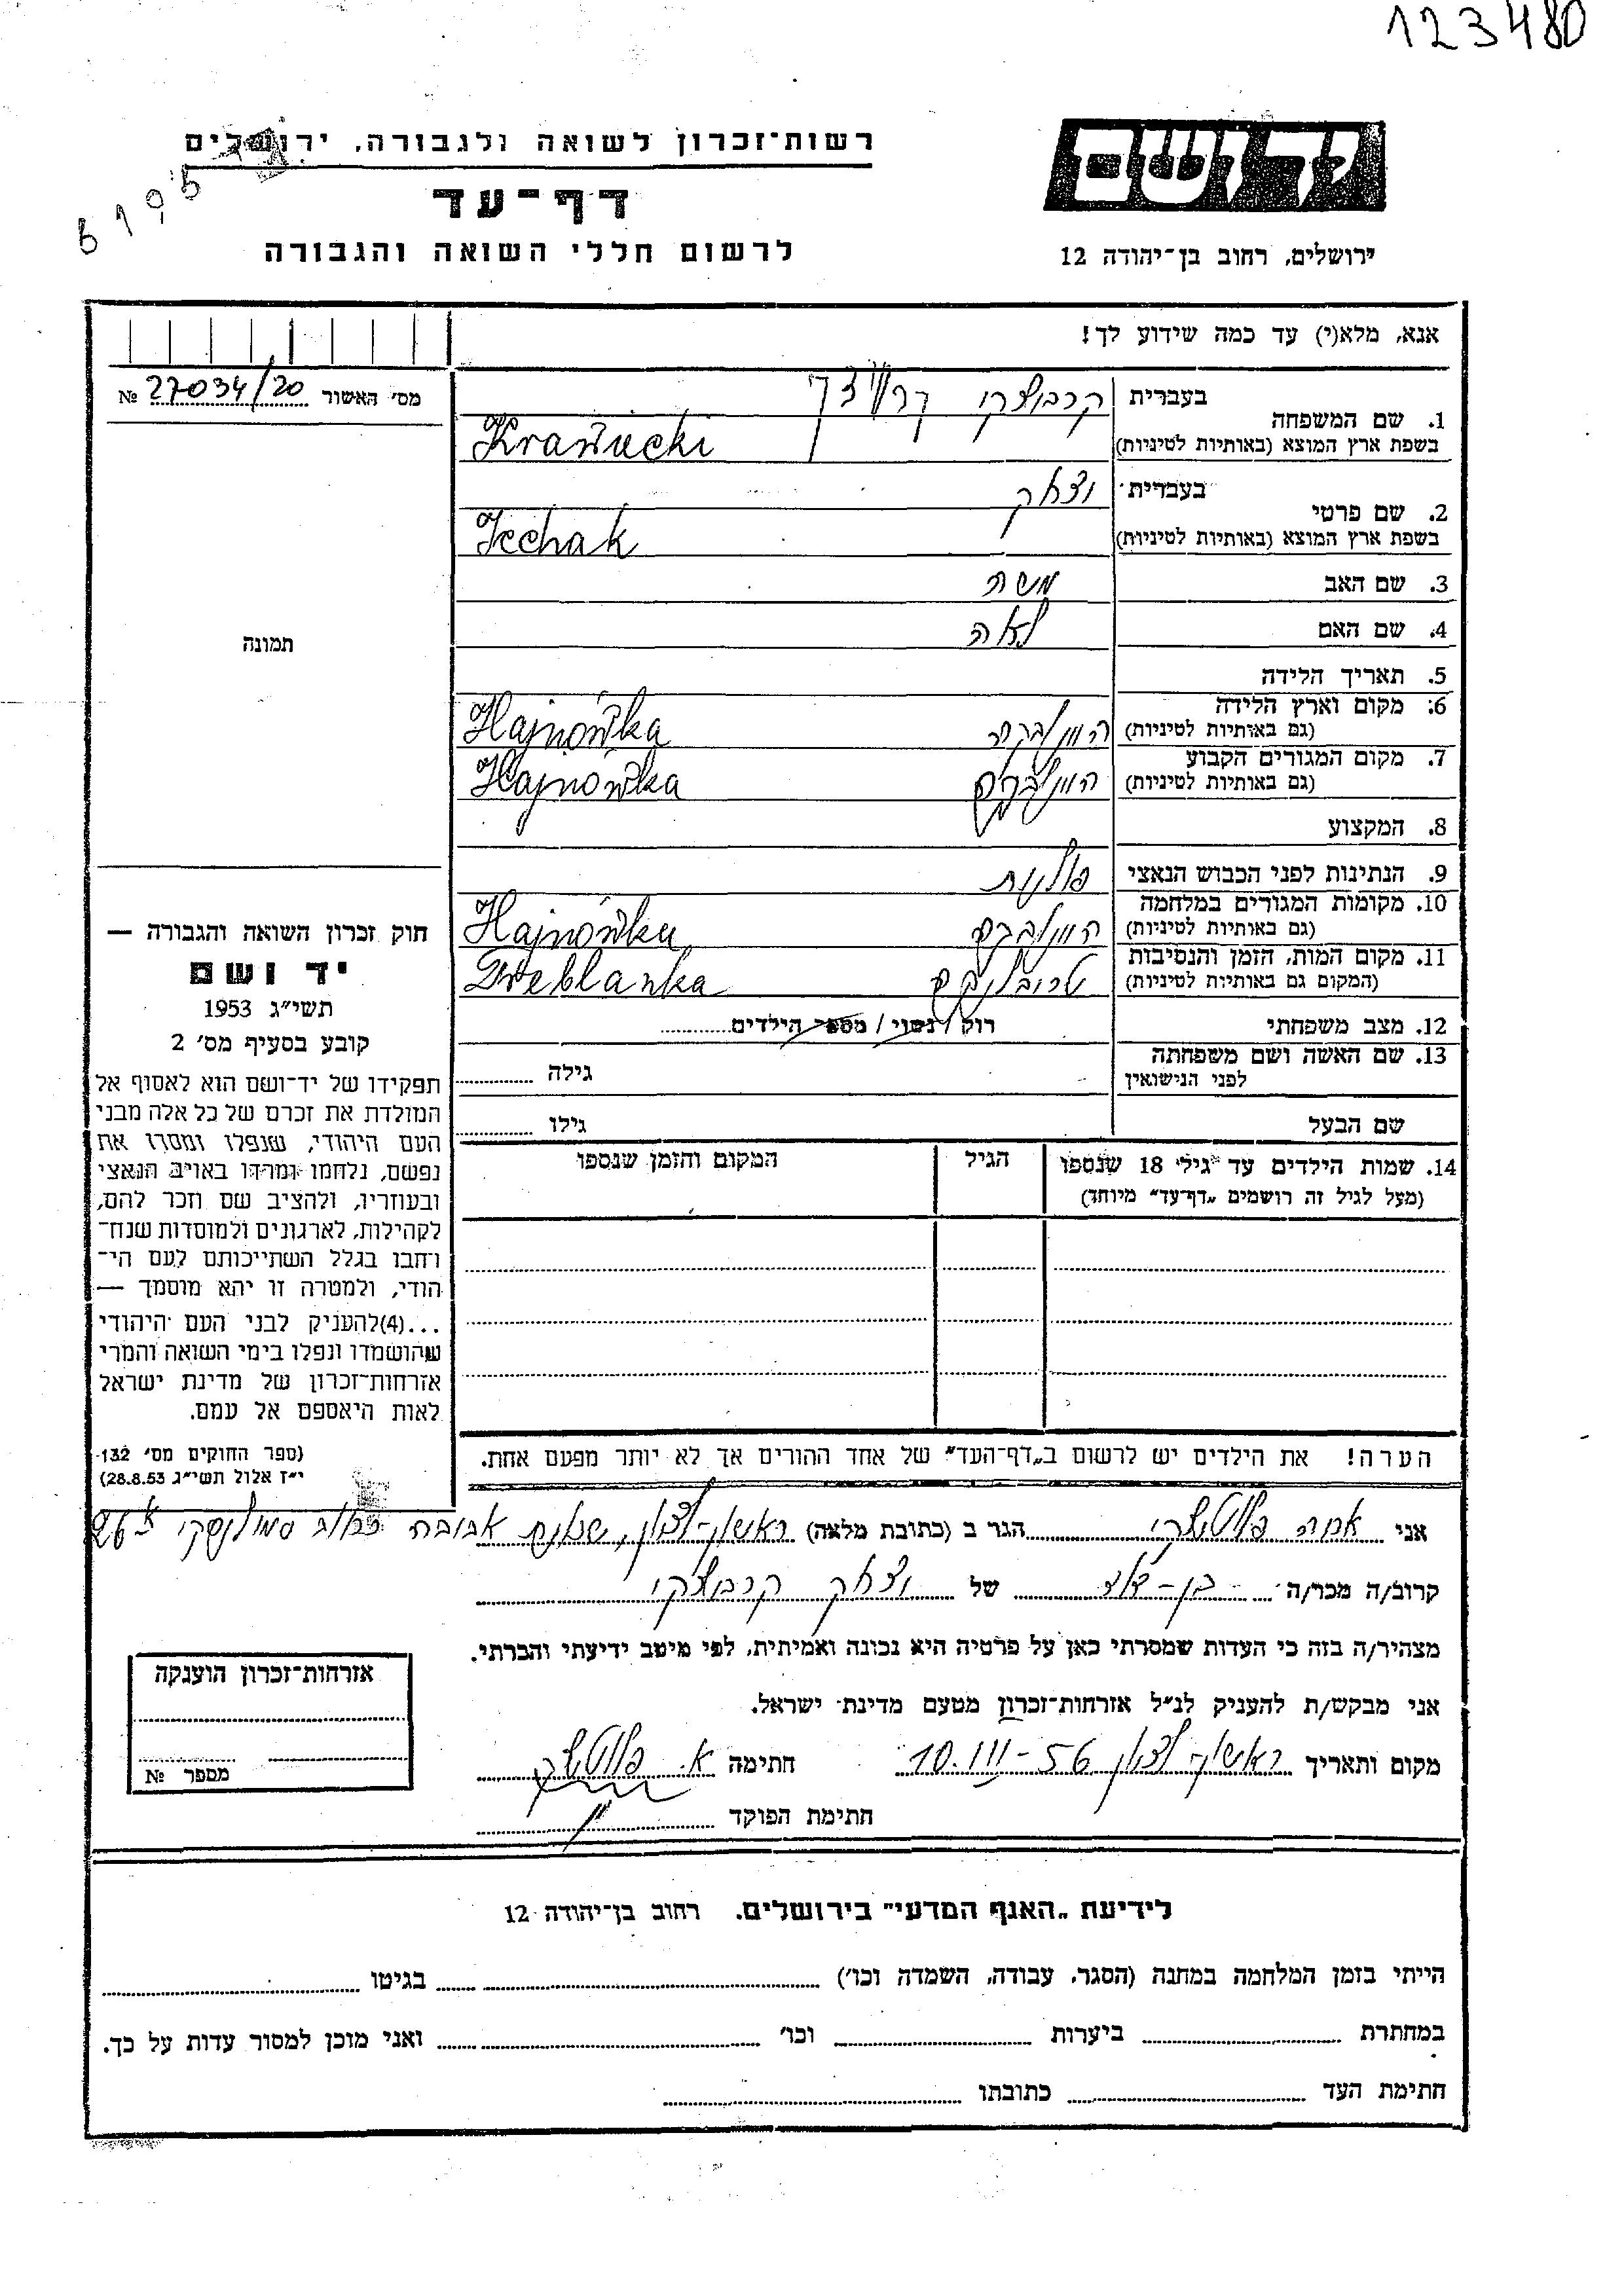 123480
רשות־זכרון לשואה ולגבורה, ירושלים
דף־עד
לרשום חללי השואה והגבורה
יד ושם
ירושלים, רחוב בן־יהודה 12
6195
אנא, מלא(י) עד כמה שידוע לך!
מס׳ האשור 27034/20 №
1. שם המשפחה
בעברית קרבוצקי
בשפת ארץ המוצא (באותיות לטיניות) Krawucki
2. שם פרטי
בעברית יצחק
בשפת ארץ המוצא (באותיות לטיניות) Icchak
3. שם האב משה
4. שם האם לאה
5. תאריך הלידה
6. מקום וארץ הלידה
(גם באותיות לטיניות) Hajnówka
7. מקום המגורים הקבוע
(גם באותיות לטיניות) Hajnówka
8. המקצוע
9. הנתינות לפני הכבוש הנאצי פולנית
10. מקומות המגורים במלחמה
(גם באותיות לטיניות) Hajnówka
11. מקום המות, הזמן והנסיבות
(המקום גם באותיות לטיניות) טרבלינקה Treblanka
12. מצב משפחתי רוק / נשוי / מספר הילדים
13. שם האשה ושם משפחתה
לפני הנישואין גילה
שם הבעל גילו
14. שמות הילדים עד גיל 18 שנספו הגיל המקום והזמן שנספו
(מעל לגיל זה רושמים „דף־עד״ מיוחד)
תמונה
חוק זכרון השואה והגבורה —
יד ושם
תשי״ג 1953
קובע בסעיף מס׳ 2
תפקידו של יד־ושם הוא לאסוף אל
המולדת את זכרם של כל אלה מבני
העם היהודי, שנפלו ומסרו את
נפשם, נלחמו ומרדו באויב הנאצי
ובעוזריו, ולהציב שם וזכר להם,
לקהילות, לארגונים ולמוסדות שנח־
רחבו בגלל השתייכותם לעם הי־
הודי, ולמטרה זו יהא מוסמך —
...(4) להעניק לבני העם היהודי
שהושמדו ונפלו בימי השואה והמרי
אזרחות־זכרון של מדינת ישראל
לאות היאספם אל עמם.
(ספר החוקים מס׳ 132
י״ז אלול תשי״ג 28.8.53)
הערה! את הילדים יש לרשום ב„דף־העד״ של אחד ההורים אך לא יותר מפעם אחת.
אני הגר ב (כתובת מלאה) ראשון־לציון, שכונת אביבה רחוב סמולנסקי
קרוב/ה מכר/ה בן־דוד של יצחק קרבוצקי
מצהיר/ה בזה כי העדות שמסרתי כאן על פרטיה היא נכונה ואמיתית, לפי מיטב ידיעתי והכרתי.
אני מבקש/ת להעניק לנ״ל אזרחות־זכרון מטעם מדינת ישראל.
מקום ותאריך ראשון־לציון 10.III-56 חתימה
חתימת הפוקד
אזרחות־זכרון הוענקה
מספר №
לידיעת „האגף המדעי״ בירושלים. רחוב בן־יהודה 12
הייתי בזמן המלחמה במחנה (הסגר, עבודה, השמדה וכו׳) בגיטו
במחתרת ביערות וכו׳ ואני מוכן למסור עדות על כך.
חתימת העד כתובתו